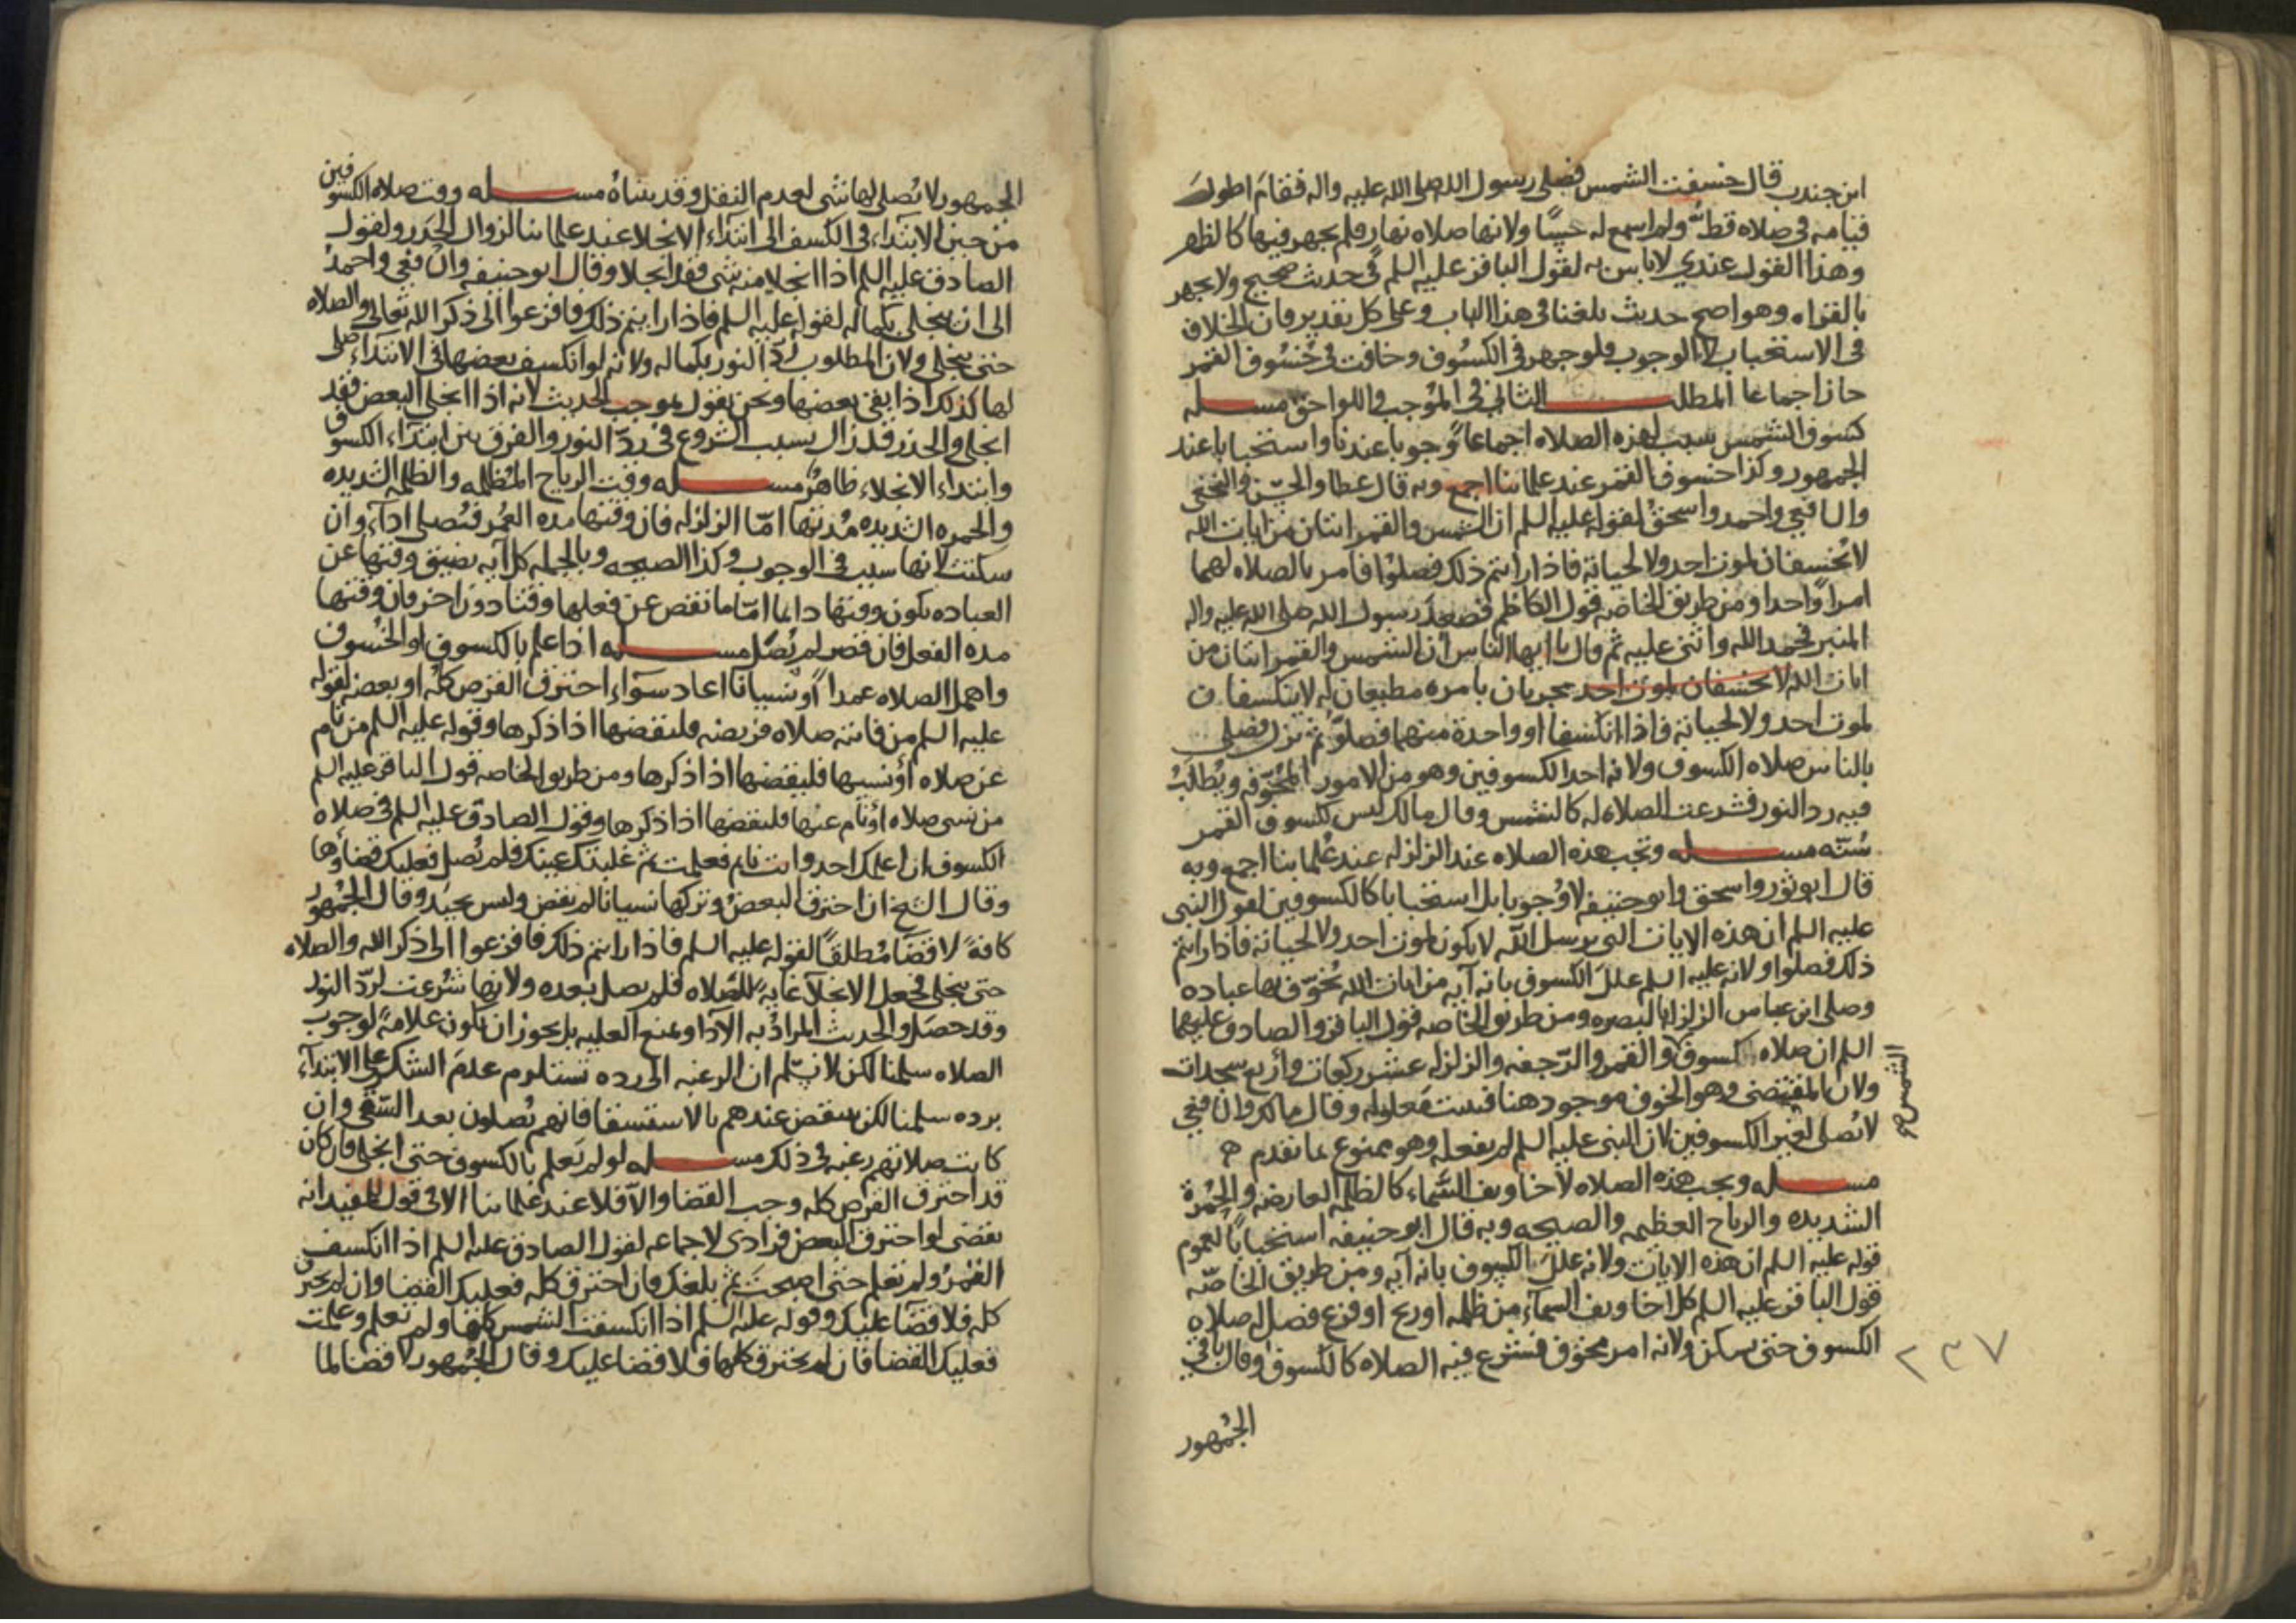 ابن جندب قال خسفت الشمس فصلى رسول الله صلى الله عليه واله فقام اطول
قيامه في صلاه قط ولم اسمع له حسًا ولانها صلاه نهار فلم يجهر فيها كالظهر
وهذا القول عندي لا باس به لقول الباقر عليه السلم في حديث صحيح ولا يجهر
بالقراه وهو اصح حديث بلغنا في هذا الباب وعلى كل تقدير فان الخلاف
في الاستحباب لا الوجوب فلو جهر في الكسوف وخافت في خسوف القمر
جاز اجماعا المطلب الثاني في الموجب واللواحق مسله
كسوف الشمس سبب لهذه الصلاه اجماعا وجوبا عندنا واستحبابا عند
الجمهور وكذا خسوف القمر عند علمائنا اجمع وبه قال عطا والحسن والنخعي
والشافعي واحمد واسحق لقوله عليه السلم ان الشمس والقمر ايتان من ايات الله
لا تخسفان لموت احد ولا لحياته فاذا رايتم ذلك فصلوا فامر بالصلاه لهما
امرا واحدا ومن طريق الخاصه قول الكاظم فصعد رسول الله صلى الله عليه واله
المنبر فحمد الله واثنى عليه ثم قال يا ايها الناس ان الشمس والقمر ايتان من
ايات الله لا تخسفان لموت احد يجريان بامره مطيعان له لا ينكسفان
لموت احد ولا لحياته فاذا انكسفا او واحدة منهما فصلوا ثم نزل فصلى
بالناس صلاه الكسوف ولانه احد الكسوفين وهو من الامور المخوفه ويطلب
فيه رد النور فشرعت الصلاه له كالشمس وقال مالك ليس لكسوف القمر
سنّه مسله وتجب هذه الصلاه عند الزلزله عند علمائنا اجمع وبه
قال ابو ثور واسحق وابو حنيفه لا وجوبا بل استحبابا كالكسوفين لقول النبي
عليه السلم ان هذه الايات التي يرسل الله لا يكون لموت احد ولا لحياته فاذا رايتم
ذلك فصلوا ولانه عليه السلم علل الكسوف بانه آيه من ايات الله يخوّف بها عباده
وصلى ابن عباس للزلزله بالبصره ومن طريق الخاصه قول الباقر والصادق عليهما
السلم ان صلاه كسوف والقمر والرّجفه والزلزله عشر ركعات واربع سجدات
الشمس صح
ولان المقتضي وهو الخوف موجود هنا فيثبت معلوله وقال مالك والشافعي
لا تصلى لغير الكسوفين لان النبي عليه السلم لم يفعله وهو ممنوع بما تقدم
مسله وتجب هذه الصلاه لاخاويف السّماء كالظلمه العارضه والحمرة
الشديده والرياح العظيمه والصيحه وبه قال ابو حنيفه استحبابا لعموم
قوله عليه السلم ان هذه الايات ولانه علل الكسوف بانه آيه ومن طريق الخاصّه
قول الباقر عليه السلم كل اخاويف السماء من ظلمه او ريح او فزع فصل له صلاه
الكسوف حتى يسكن ولانه امر مخوّف فشرع فيه الصلاه كالكسوف وقال باقي
٢٣٧
الجمهور
الجمهور لا تصلى لها شي لعدم النقل وقد بيناه مسله وقت صلاه الكسوفين
من حين الابتداء في الكسف الى ابتداء الانجلا عند علمائنا لزوال الحذر ولقول
الصادق عليه السلم اذا انجلا منه شي فقد انجلا وقال ابو حنيفه والشافعي واحمد
الى ان ينجلي بكماله لقوله عليه السلم فاذا رايتم ذلك فافزعوا الى ذكر الله تعالى والصلاه
حتى ينجلي ولان المطلوب ردّ النور بكماله ولانه لو انكسف بعضها في الابتداء صلى
لها كذلك اذا بقي بعضها ونحن نقول بموجب الحديث لانه اذا انجلى البعض فقد
انجلى والحذر قد زال بسبب الشروع في ردّ النور والفرق بين ابتداء الكسوف
وابتداء الانجلاء ظاهر مسله وقت الرياح المظلمه والظلمه الشديده
والحمره الشديده مدتها امّا الزلزله فان وقتها مده العمر فتصلى اداء وان
سكنت لانها سبب في الوجوب وكذا الصيحه وبالجمله كل آيه يضيق وقتها عن
العباده يكون وقتها دائما امّا ما نقص عن فعلها وقتا دون اخر فان وقتها
مده الفعل فان قصر لم تصلّ مسله اذا علم بالكسوف او الخسوف
واهمل الصلاه عمدا او نسيانا اعاد سواء احترق القرص كله او بعضه لقوله
عليه السلم من فاتته صلاه فريضه فليقضها اذا ذكرها وقوله عليه السلم من نام
عن صلاه او نسيها فليقضها اذا ذكرها ومن طريق الخاصه قول الباقر عليه السلم
من نسي صلاه او نام عنها فليقضها اذا ذكرها وقول الصادق عليه السلم في صلاه
الكسوف ان اعلمك احد وانت نايم فعلمت ثم غلبتك عينك فلم تصل فعليك قضاؤها
وقال الشيخ ان احترق البعض وتركها نسيانا لم يقض وليس بجيد وقال الجمهور
كافة لا قضا مطلقًا لقوله عليه السلم فاذا رايتم ذلك فافزعوا الى ذكر الله والصلاه
حتى ينجلي فجعل الانجلا غايه للصلاه فلم يصل بعده ولانها شرعت لردّ النور
وقد حصل والحديث المراد به الآداء ونمنع العليه بل يجوز ان يكون علامة لوجوب
الصلاه سلمنا لكن لا نسلم ان الرغبه الى رده تستلزم عدم الشكر على الابتداء
برده سلمنا لكن ينتقض عندهم بالاستسقا فانهم يصلون بعد السّقي وان
كانت صلاتهم رغبه في ذلك مسله لو لم يعلم بالكسوف حتى انجلى فان كان
قد احترق القرص كله وجب القضا والا فلا عند علمائنا الا في قول للمفيد انه
يقضي لو احترق البعض فرادى لا جماعه لقول الصادق عليه السلم اذا انكسف
القمر ولم تعلم حتى اصبحت ثم بلغك فان احترق كله فعليك القضا وان لم يحترق
كله فلا قضا عليك وقوله عليه السلم اذا انكسفت الشمس كلها ولم تعلم وعلمت
فعليك القضا فان لم يحترق كلها فلا قضا عليك وقال الجمهور لا قضا لما